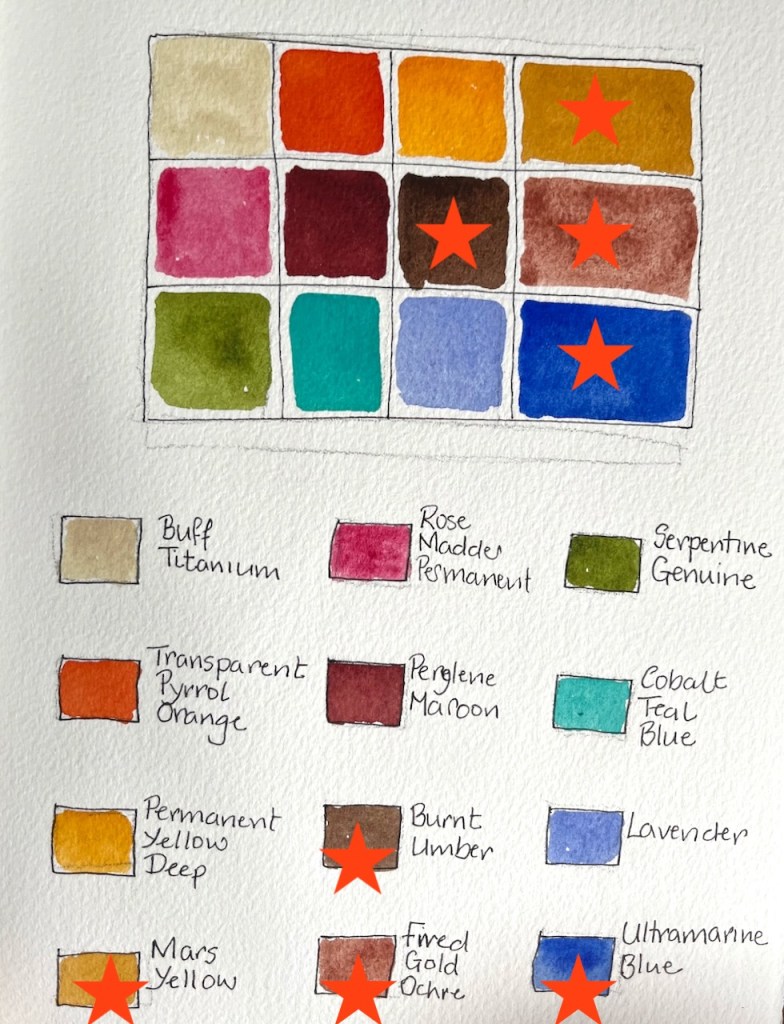 Buff
Titanium
Rose
Madder
Permanent
Serpentine
Genuine
Transparent
Pyrrol
Orange
Perylene
Maroon
Cobalt
Teal
Blue
Permanent
Yellow
Deep
Burnt
Umber
Lavender
Mars
Yellow
Fired
Gold
Ochre
Ultramarine
Blue